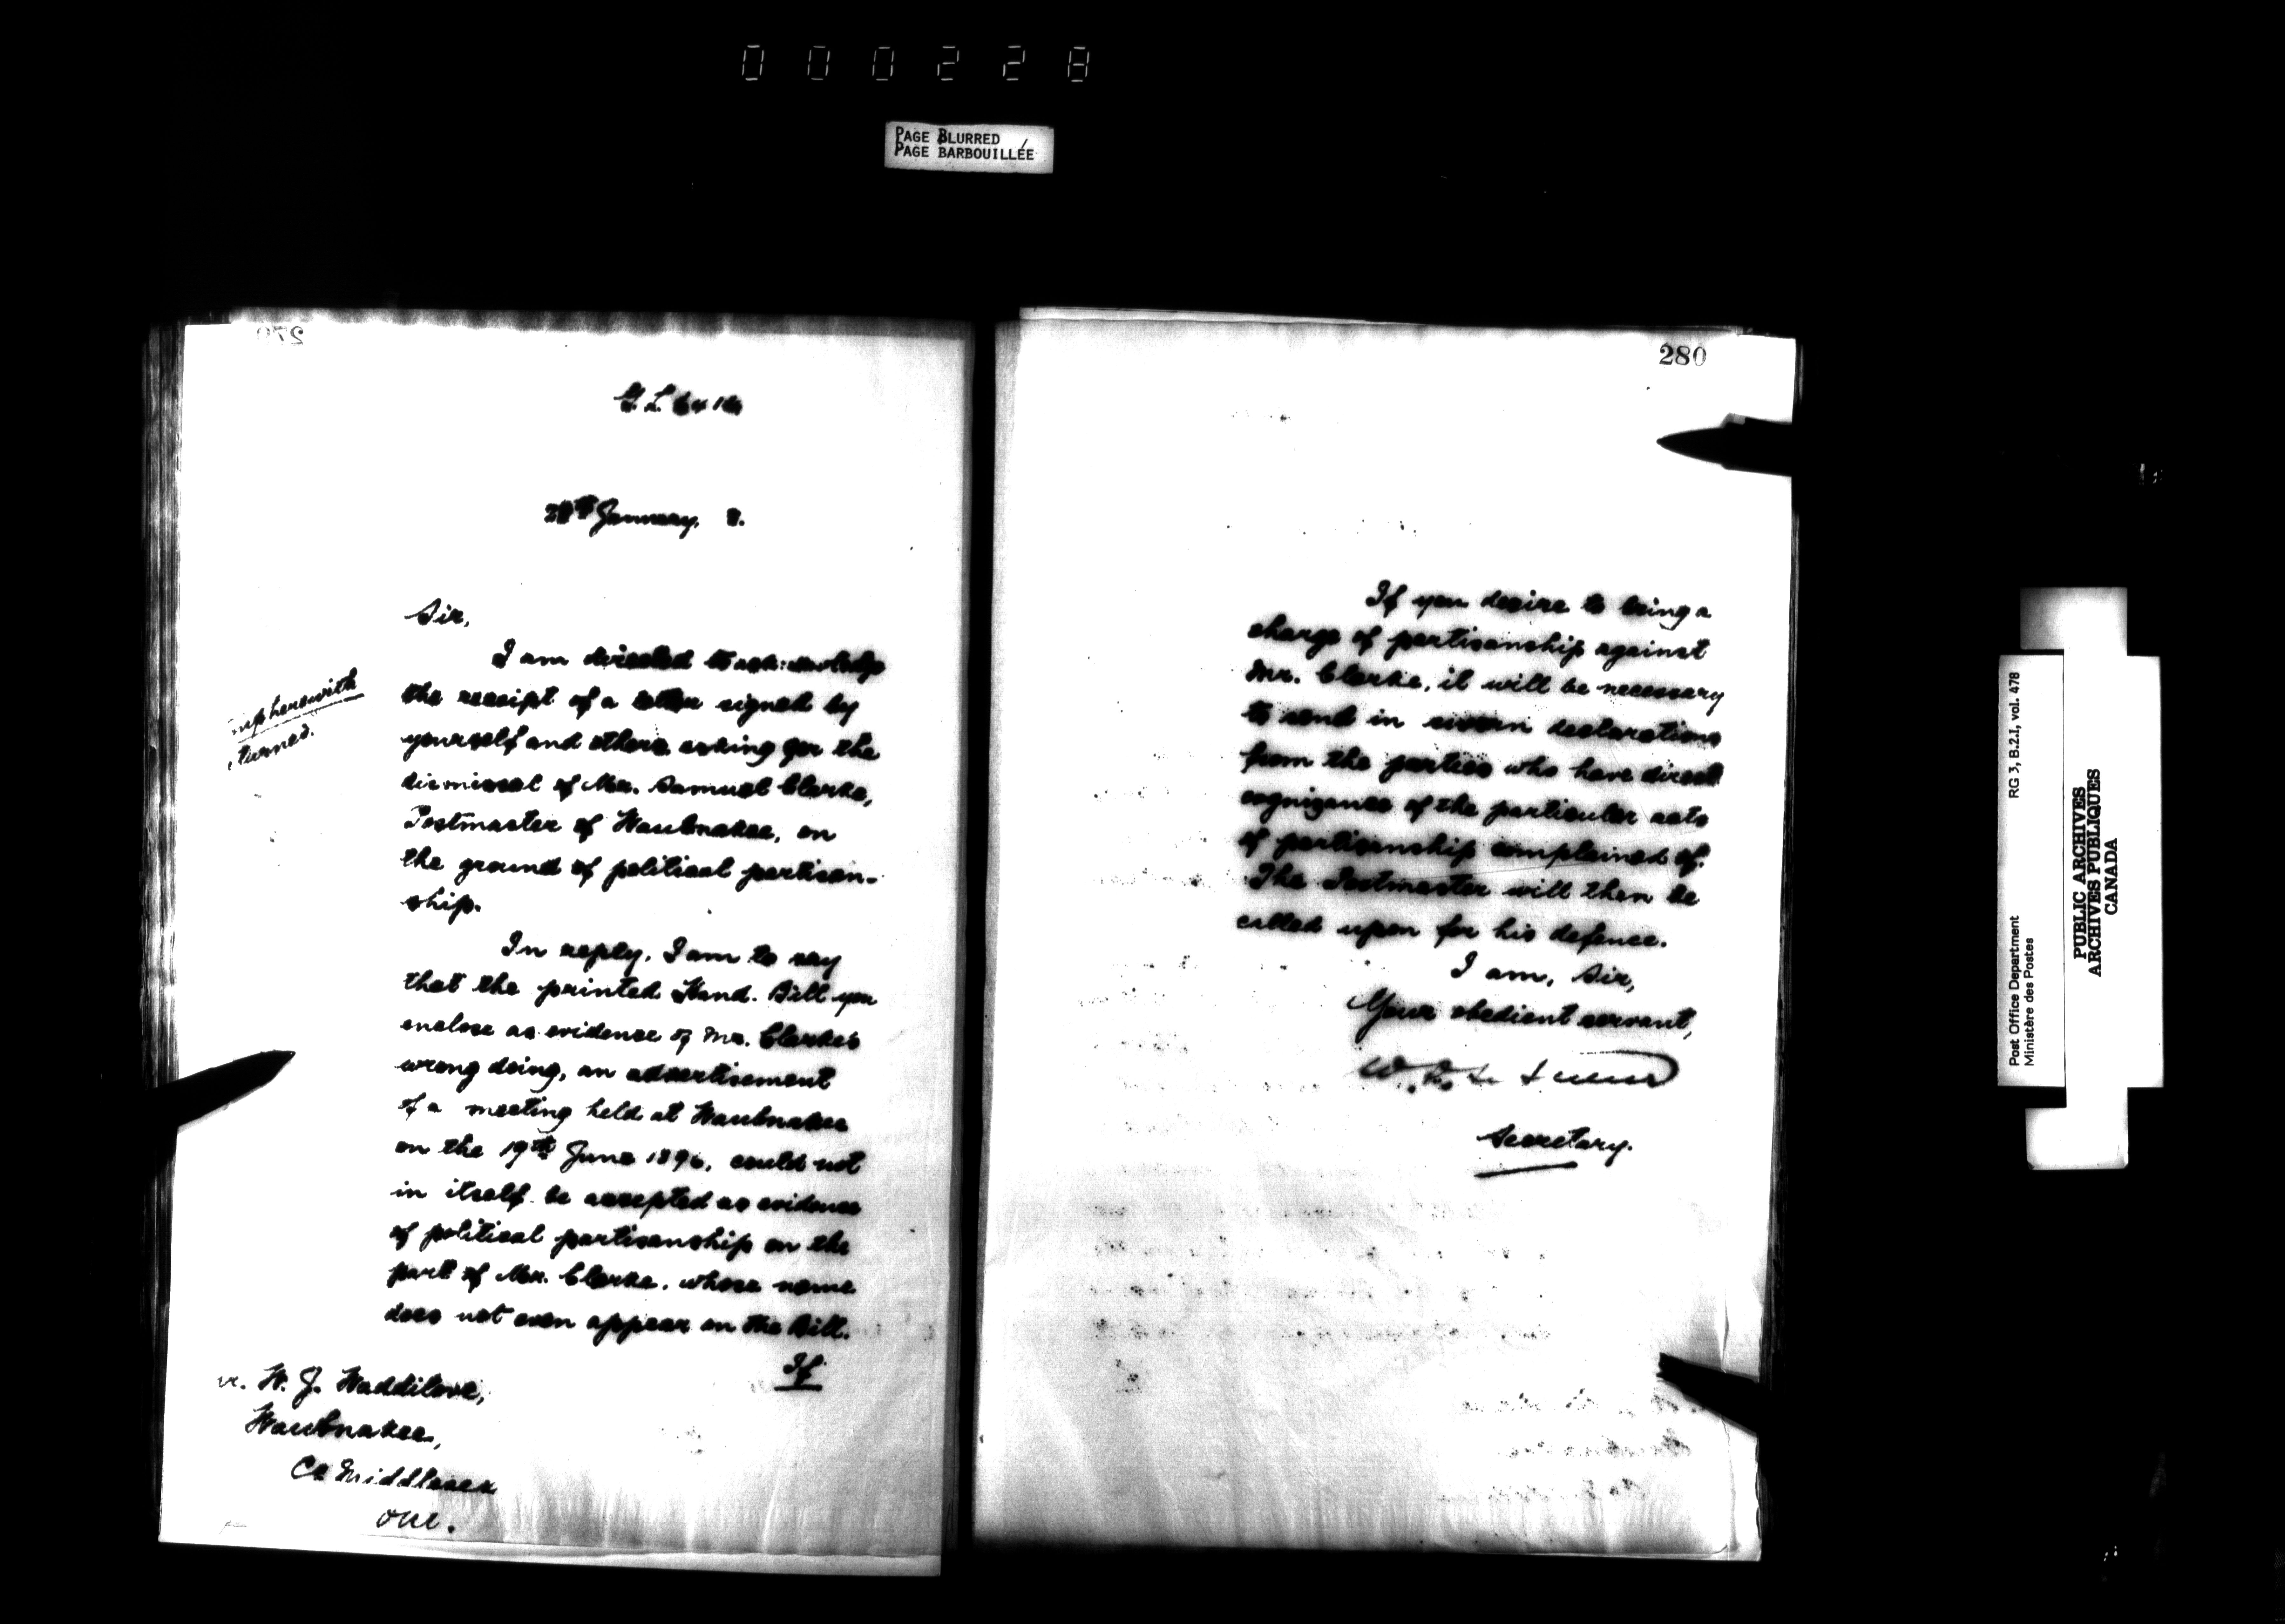 000228
PAGE BLURRED
PAGE BARBOUILLÉE
January, 8.
Sir,
I am directed to acknowledge
the receipt of a letter signed by
yourself and others asking for the
dismissal of Mr. Samuel Clarke,
Postmaster of Waubnakee, on
the ground of political partisan-
ship.
herewith
In reply, I am to say
that the printed Hand. Bill you
enclose as evidence of Mr. Clarke's
wrong doing, an advertisement
of a meeting held at Waubnakee
on the 19th June 1896, could not
in itself be accepted as evidence
of political partisanship on the
part of Mr. Clarke, whose name
does not even appear on the Bill.
If
W. J. Waddilove,
Waubnakee,
Co Middlesex
Ont.
280
If you desire to bring a
charge of partisanship against
Mr. Clarke, it will be necessary
to send in sworn declarations
from the parties who have direct
cognizance of the particular acts
of partisanship complained of.
The Postmaster will then be
called upon for his defence.
I am, Sir,
Your obedient servant,
Secretary.
Post Office Department
Ministère des Postes
RG 3, B.2.I, vol. 478
PUBLIC ARCHIVES
ARCHIVES PUBLIQUES
CANADA